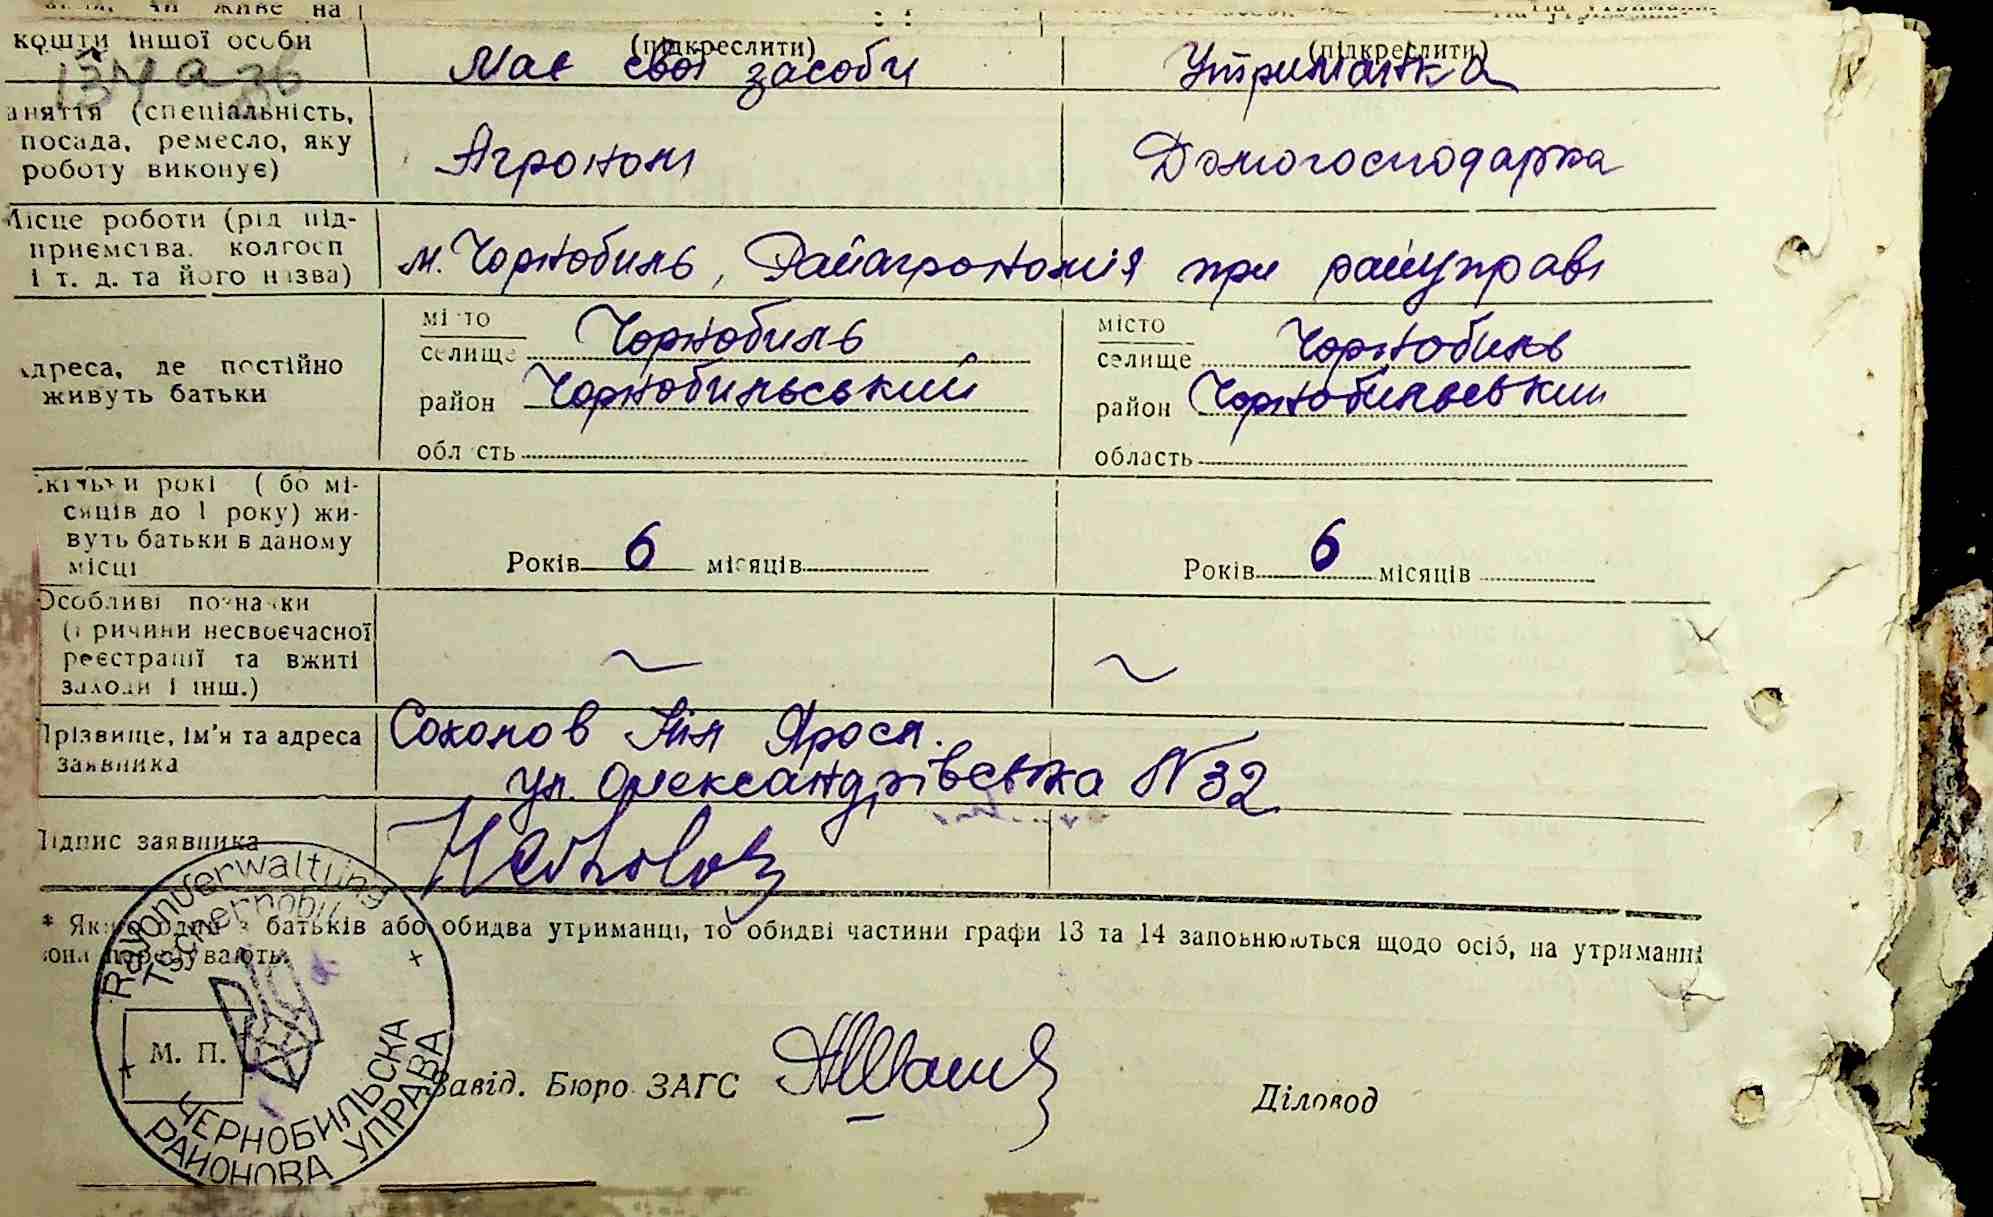 чи живе на
кошти іншої особи
(підкреслити)
(підкреслити)
Має свої засоби
Утриманка
(спеціальність,
посада, ремесло, яку
роботу виконує)
Агроном
Домогосподарка
Місце роботи (рід під-
приємства. колгосп
і т. д. та його назва)
м. Чорнобиль, Райагрономія при райуправі
Адреса, де постійно
живуть батьки
місто
селище Чорнобиль
район Чорнобильський
область
місто
селище Чорнобиль
район Чорнобильський
область
Скільки років ( або мі-
сяців до 1 року) жи-
вуть батьки в даному
місці
Років 6 місяців
Років 6 місяців
Особливі позначки
(причини несвоєчасної
реєстрації та вжиті
заходи і інш.)
Прізвище, ім'я та адреса
заявника
Соколов Яросл.
ул. Олександрівська N 32
Підпис заявника
* Якщо один з батьків або обидва утриманці, то обидві частини графи 13 та 14 заповнюються щодо осіб, на утриманні
вони перебувають.
Rayonverwaltung
Tschernobil
М. П.
ЧЕРНОБИЛЬСКА
РАЙОНОВА УПРАВА
Завід. Бюро ЗАГС
Діловод